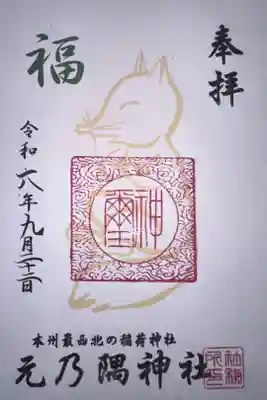 奉拝
福
神璽
令和六年九月二十二日
本州最西北の稲荷神社
元乃隅神社